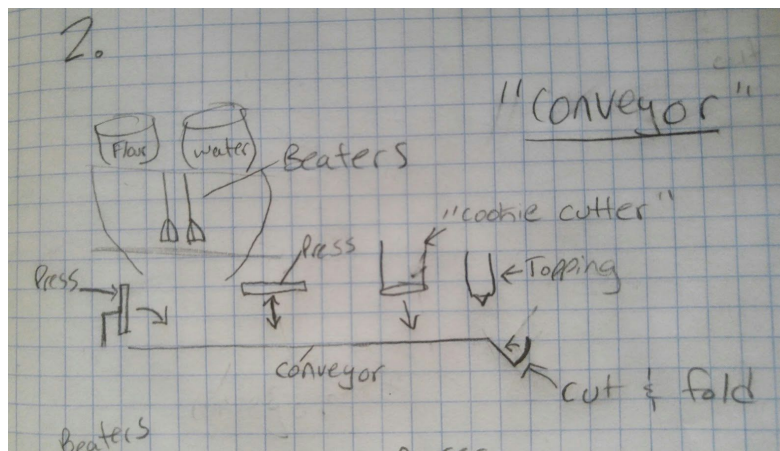 2.
"Conveyor"
Flour
Water
Beaters
"cookie cutter"
Press
Topping
Press
conveyor
cut & fold
Beaters